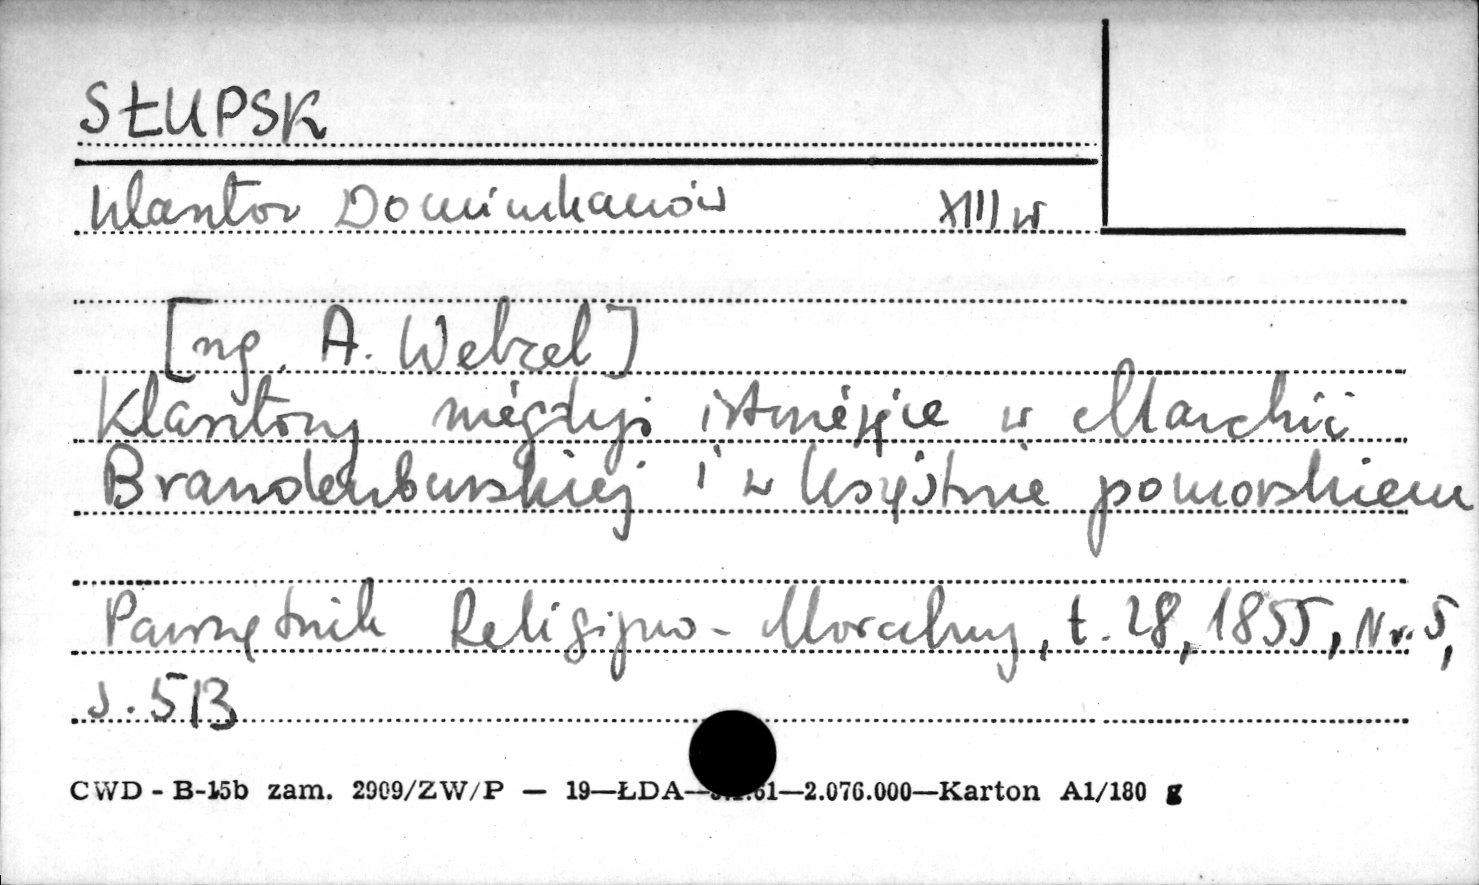 SŁUPSK
klasztor Dominikanów XIII w
[wg. A. Welzel]
Klasztory niegdyś istniejące w Marchii
Brandenburskiej i w Księstwie pomorskiem
Pamiętnik Religijno-Moralny, t. 28, 1855, Nr. 5,
s. 513
CWD - B-15b zam. 2909/ZW/P — 19—ŁDA— 61—2.076.000—Karton A1/180 g